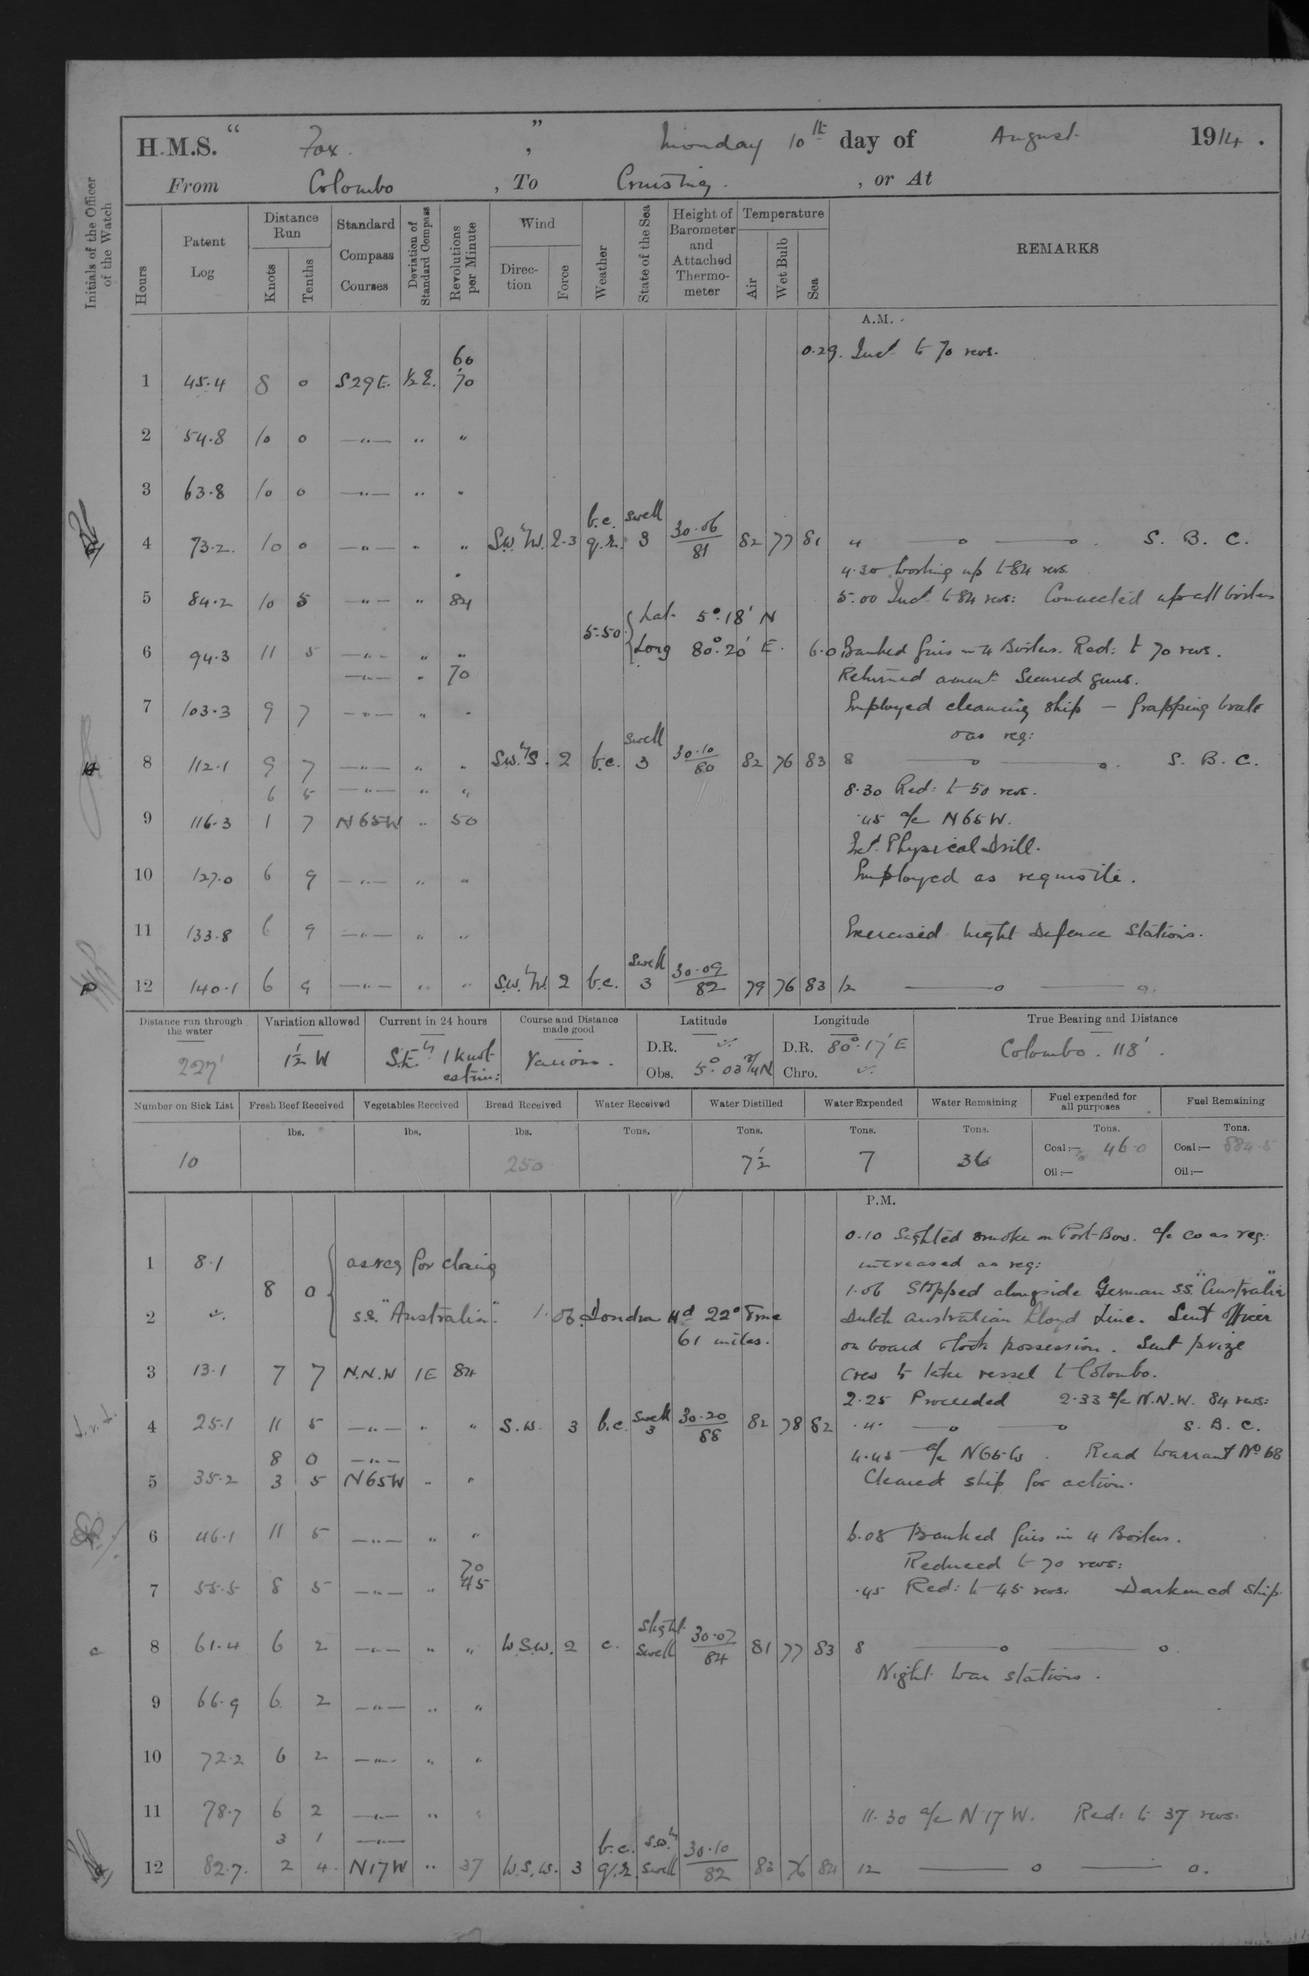 H.M.S. " Fox. ", Monday 10th day of August 1914.
From Colombo, To Cruising., or At
Initials of the Officer of the Watch
Hours
Patent Log
Distance Run
Knots
Tenths
Standard Compass Courses
Deviation of Standard Compass
Revolutions per Minute
Wind
Direction
Force
Weather
State of the Sea
Height of Barometer and Attached Thermometer
Temperature
Air
Wet Bulb
Sea
REMARKS
A.M.
60 0.29. Incd to 70 revs.
1 45.4 8 0 S29E. ½E. 70
2 54.8 10 0 —"— " "
3 63.8 10 0 —"— " "
b.c. swell
4 73.2. 10 0 —"— " " S.W.'W. 2-3 q.r. 3 30.06/81 82 77 81 4 —o —o. S. B. C.
4.30 Working up to 84 revs.
5 84.2 10 5 —"— " 84 5.00 Incd to 84 revs: Connected up all boilers
5.50 { Lat. 5°.18' N
Long 80°.20' E.
6 94.3 11 5 —"— " " 6.0 Banked fires in 4 Boilers. Red: to 70 revs.
—"— " 70 Returned ammt. Secured guns.
7 103.3 9 7 —"— " " Employed cleaning ship — frapping boats
oas req:
swell
8 112.1 9 7 —"— " " S.W.'S. 2 b.c. 3 30.10/80 82 76 83 8 —o —o. S. B. C.
6 5 —"— " " 8.30 Red: to 50 revs.
9 116.3 1 7 N65W " 50 .45 a/c N65W.
Physical Drill.
10 127.0 6 9 —"— " " Employed as requisite.
11 133.8 6 9 —"— " " Exercised Night Defence Stations.
swell
12 140.1 6 9 —"— " " S.W.'W. 2 b.c. 3 30.09/82 79 76 83 12 —o —o.
Distance run through the water
227'
Variation allowed
1½ W
Current in 24 hours
S.E.'ly 1 knot estim:
Course and Distance made good
Various.
Latitude
D.R.
Obs. 5°.03¾'N
Longitude
D.R. 80°.17' E
Chro.
True Bearing and Distance
Colombo. 118'.
Number on Sick List
Fresh Beef Received
Vegetables Received
Bread Received
Water Received
Water Distilled
Water Expended
Water Remaining
Fuel expended for all purposes
Fuel Remaining
lbs. lbs. lbs. Tons. Tons. Tons. Tons. Tons. Tons.
10 250 7½ 7 36 Coal:— 46.0 Coal:— 884.5
Oil:— Oil:—
P.M.
0.10 Sighted smoke on Port Bow. a/c co as req:
increased as req:
1 8.1 8 0 { as req for closing
s.s. "Australia".
1.06 Stopped alongside German s.s. "Australia"
2 1.06. Dondra Hd 22° True
61 miles.
Dutch Australian Lloyd Line. Sent Officer
on board & took possession. Sent prize
3 13.1 7 7 N.N.W 1E 84 crew to take vessel to Colombo.
2.25 Proceeded 2.33 a/c N.N.W. 84 revs:
4 25.1 11 5 —"— " " S.W. 3 b.c. swell 3 30.20/88 82 78 82 4 —o —o S. B. C.
8 0 —"— 4.45 a/c N65W. Read Warrant No 68
5 35.2 3 5 N65W " " Cleared ship for action.
6 46.1 11 5 —"— " " 6.08 Banked fires in 4 Boilers.
70 Reduced to 70 revs:
7 55.5 8 5 —"— " 45 .45 Red: to 45 revs. Darkened ship.
slight
8 61.4 6 2 —"— " " W.S.W. 2 c. swell 30.07/84 81 77 83 8 —o —o
Night War stations.
9 66.9 6 2 —"— " "
10 72.2 6 2 —"— " "
11 78.7 6 2 —"— " " 11.30 a/c N17W. Red: to 37 revs.
3 1 —"— b.c. s.w.'ly
12 82.7. 2 4. N17W " 37 W.S.W. 3 q.r. swell 30.10/82 83 76 84 12 —o —o.